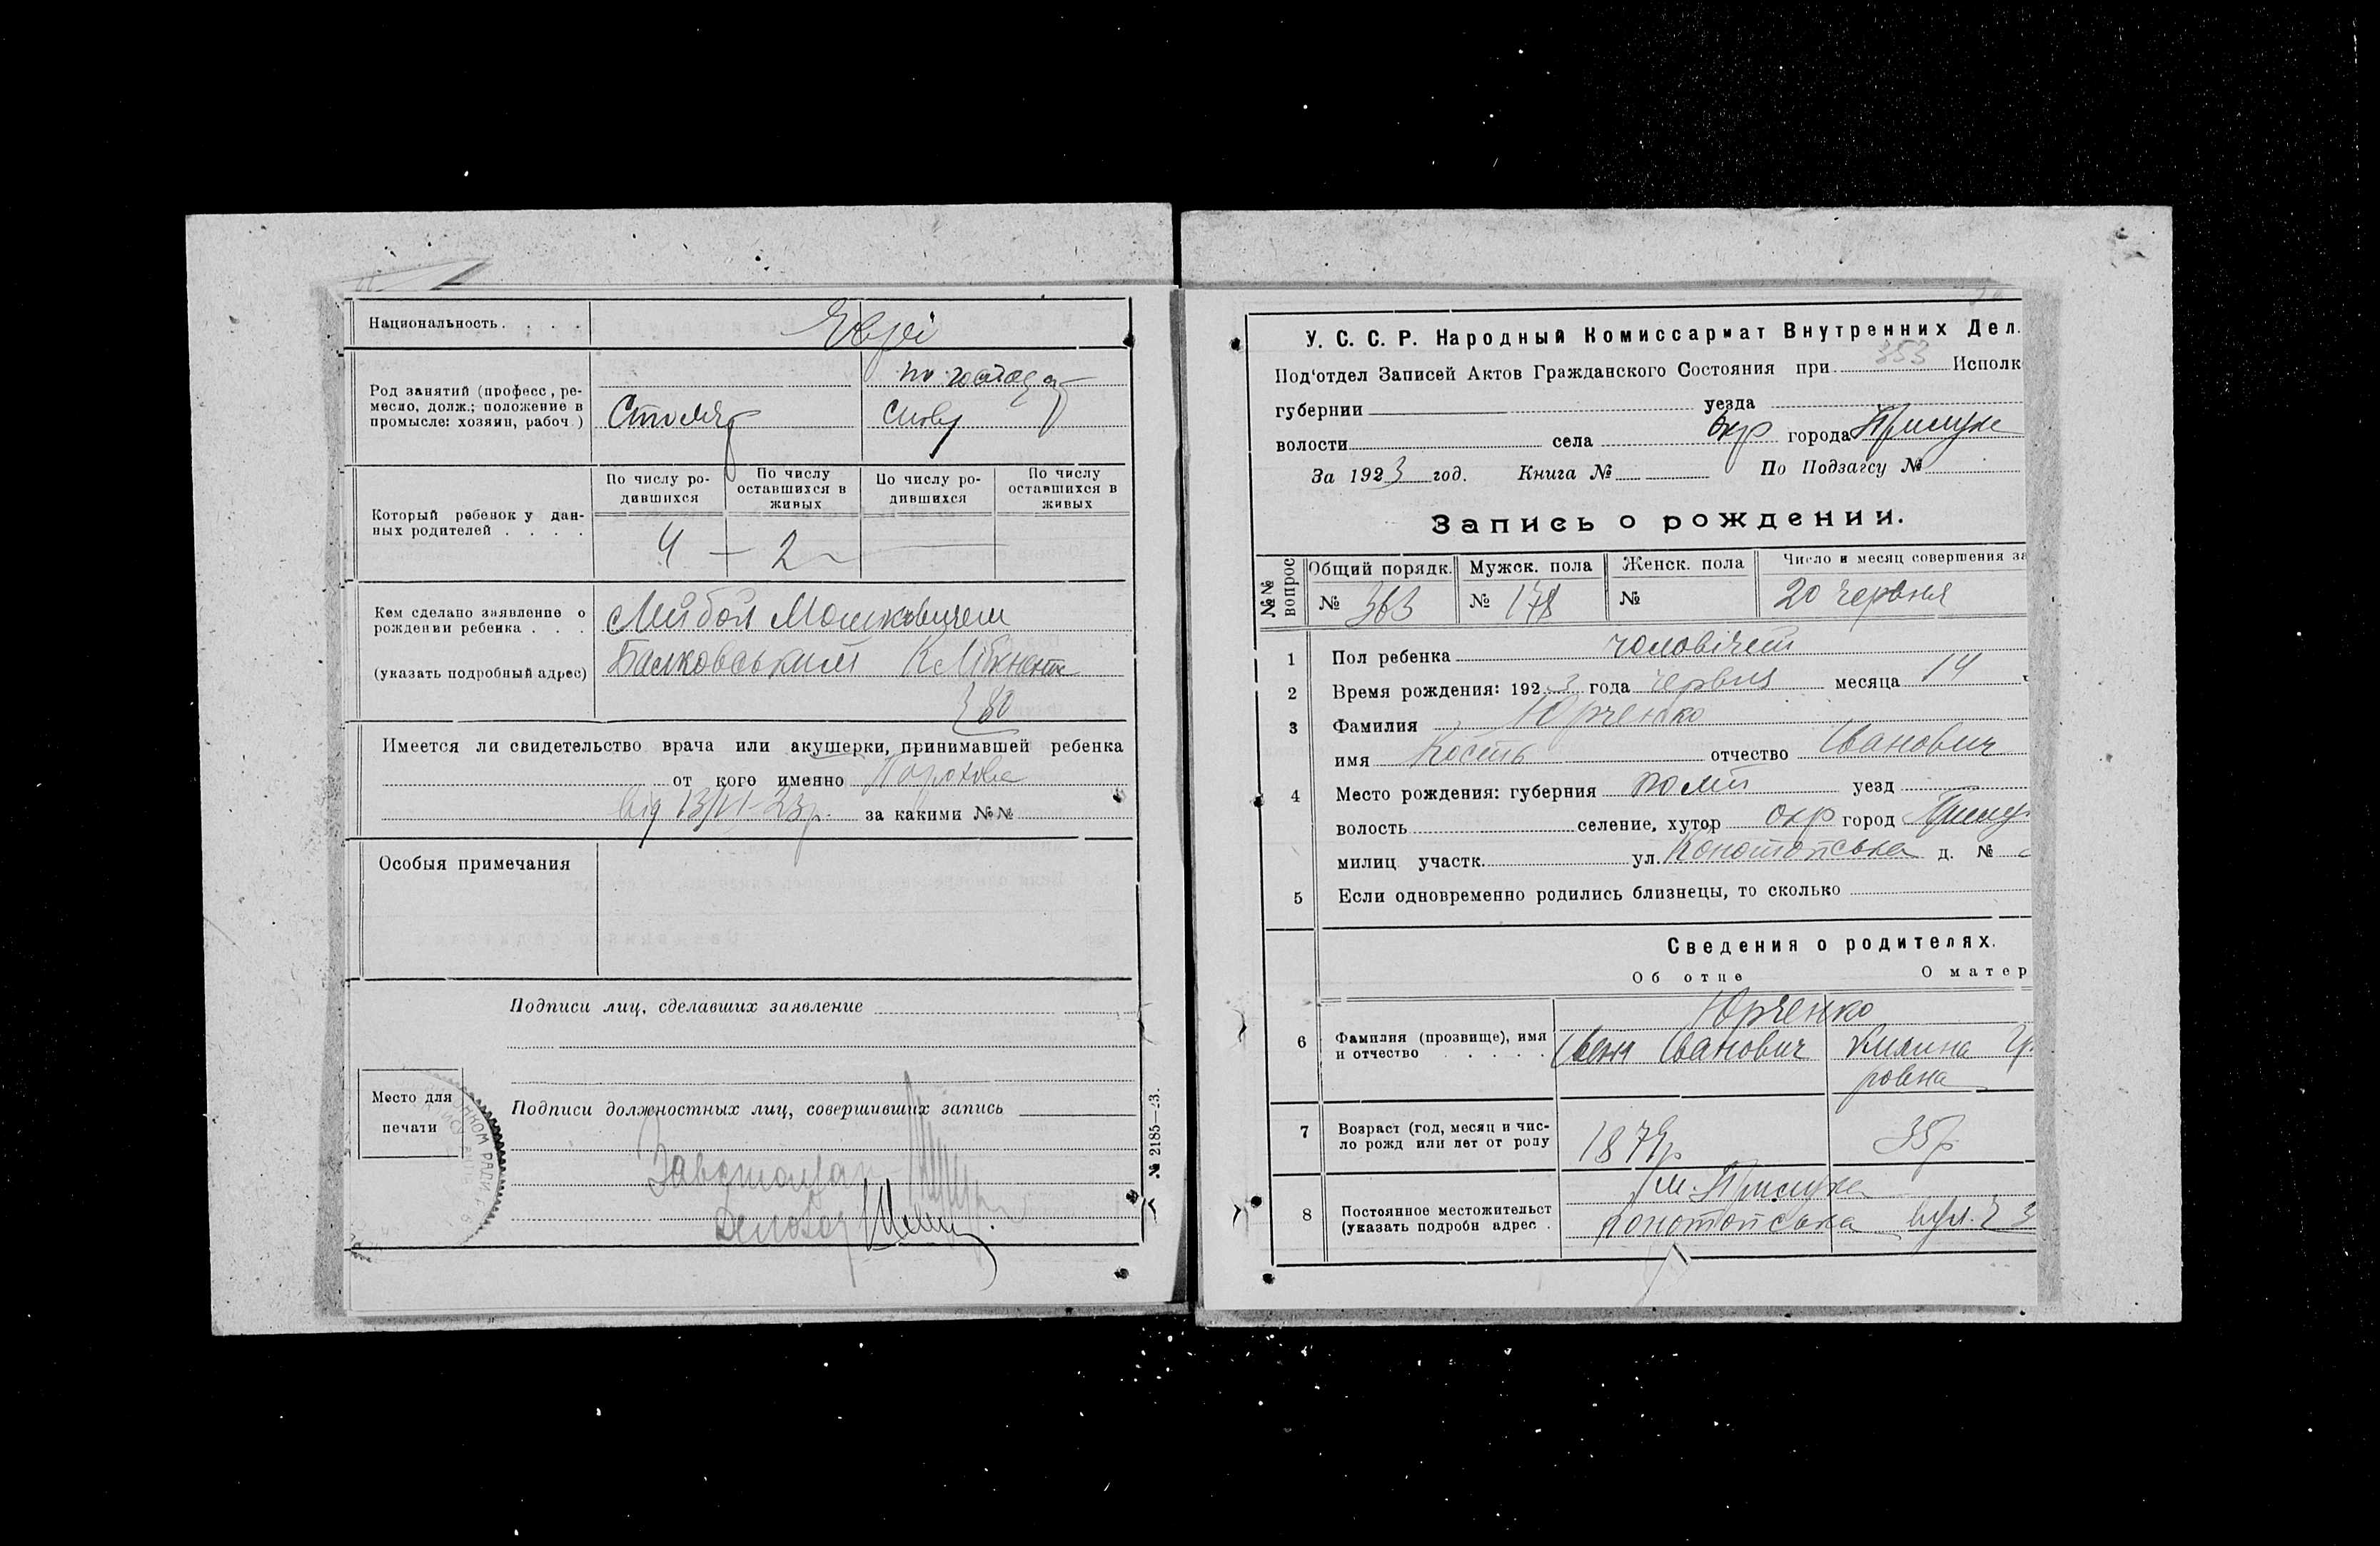 Национальность . . . . Євреї
Род занятий (професс, ре-
месло, долж.; положение в
промысле: хозяин, рабоч.)
Столяр
по господар
ству
По числу ро-
дившихся
По числу
оставшихся в
живых
По числу ро-
дившихся
По числу
оставшихся в
живых
Который ребенок у дан-
ных родителей . . . .
4 — 2
Кем сделано заявление о
рождении ребенка . . .
(указать подробный адрес)
Лейбой Мошковичем
80
Имеется ли свидетельство врача или акушерки, принимавшей ребенка
от кого именно
від 13/VI-23р. за какими №№
Особыя примечания
Подписи лиц, сделавших заявление
Место для
печати
Подписи должностных лиц, совершивших запись
Діловод
№ 2185—23.
У. С. С. Р. Народный Комиссариат Внутренних Дел.
Под'отдел Записей Актов Гражданского Состояния при 353 Исполк
губернии уезда
волости села окр города Прилуке
За 1923 год. Книга № По Подзагсу №
Запись о рождении.
№№ вопрос
Общий порядк. Мужск. пола Женск. пола Число и месяц совершения за
№ 363 № 178 № 20 червня
1 Пол ребенка чоловічет
2 Время рождения: 1923 года червня месяца 14
3 Фамилия Юрченко
имя Кость отчество Іванович
4 Место рождения: губерния Полт уезд
волость селение, хутор окр город Прилу
милиц участк. ул. Конотопська д. №
5 Если одновременно родились близнецы, то сколько
Сведения о родителях.
Об отце О матер
Юрченко
6 Фамилия (прозвище), имя
и отчество . . . . .
Іван Іванович
Килина Гр
ровна
7 Возраст (год, месяц и чис-
ло рожд или лет от роду
1879р
35р
8 Постоянное местожительст
(указать подробн адрес .
м. Прилуке
Конотопська вул. Ч 3